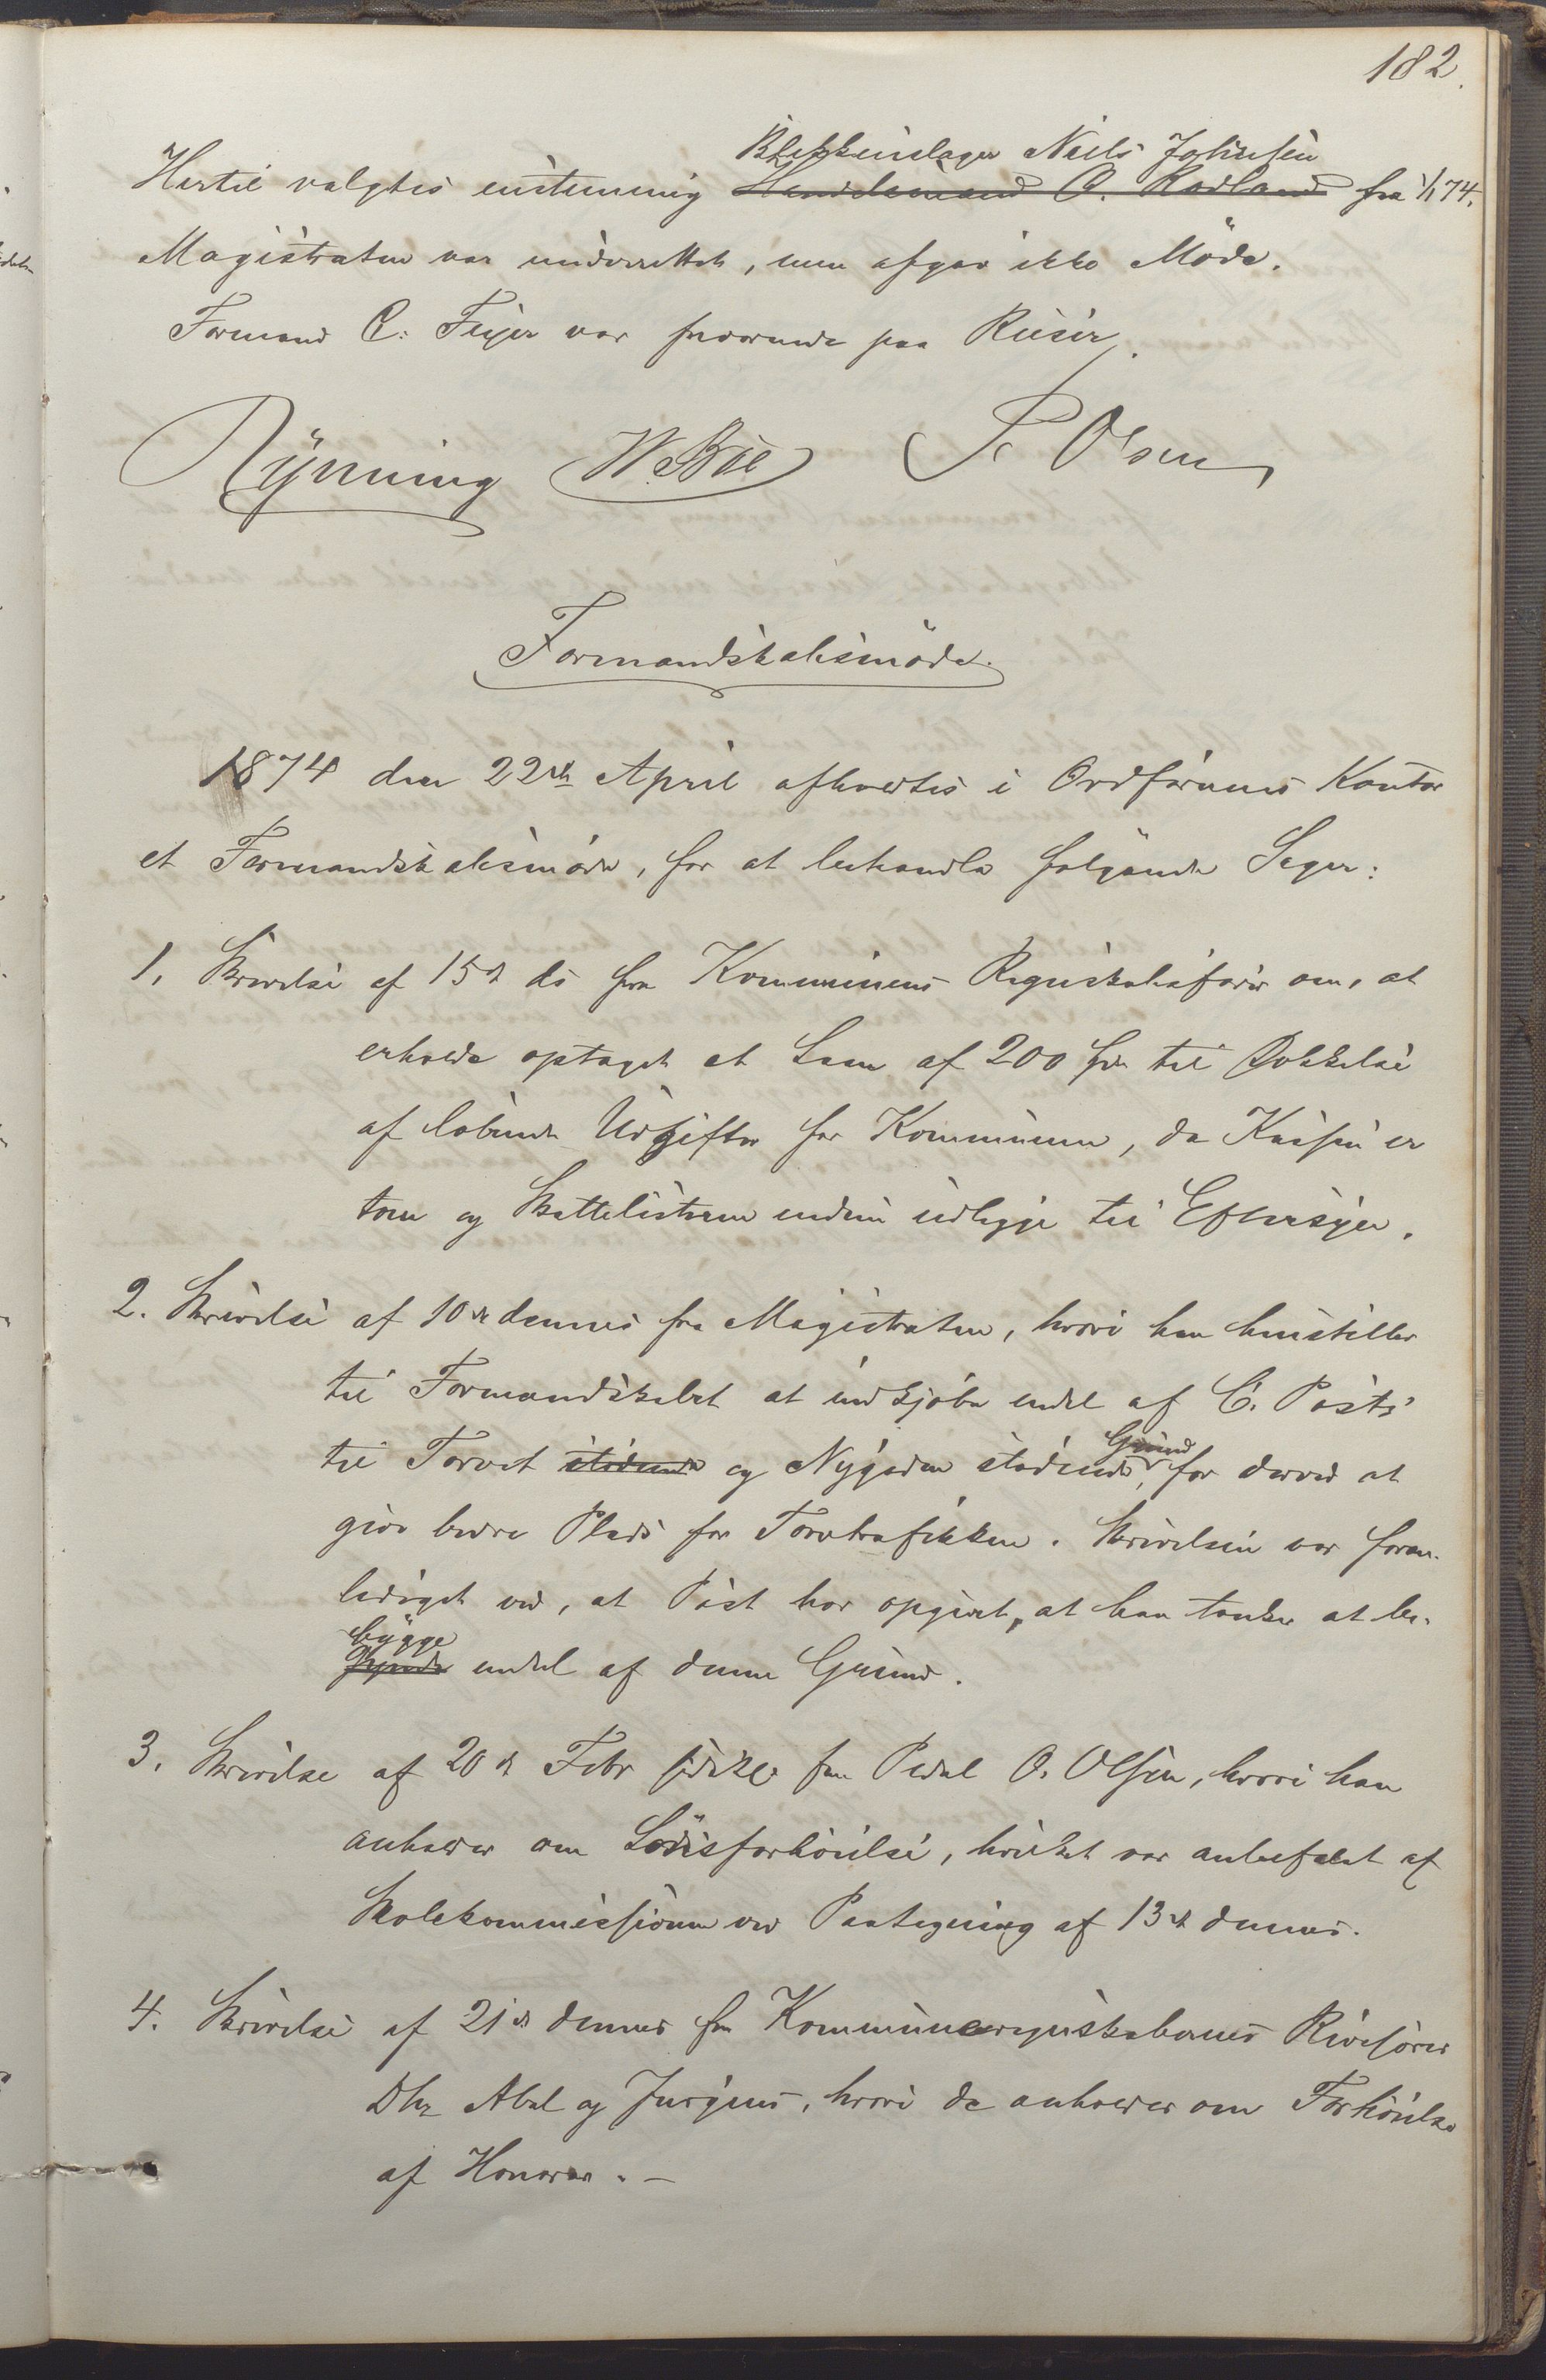 182.
Blikkenslager Niels Johnsen
Hertil valgtes enstemmig Handelsmand O. Rodland fra 1/1 74.
Magistraten var underrettet, men afgav ikke Møde.
Formand C: Feyer var fraværende paa Reiser.
Rÿnning W. Bøe P Olsen
Formandskabsmöde.
1874 den 22de April afholdtes i Ordførerens Kontor
et Formandskabsmøde, for at behandle følgende Sager:
1. Skrivelse af 15de ds fra Kommunens Regnskabsfører om, at
erholde optaget et Laan af 200 Spd til Dækkelse
af løbende Udgifter for Kommunen, da Kassen er
tom og Skattelisterne endnu udlægge til Eftersyn.
2. Skrivelse af 10de dennes fra Magistraten, hvori han henstiller
til Formandskabet at indkjøbe endel af C. Posts
Grund
til Torvet stødende og Nygaden stødende, for derved at
give bedre Plads for Torvtrafikken. Skrivelsen var foran-
lediget ved, at Post har opgivet, at han tænker at be-
bygge
endel af denne Grund.
3. Skrivelse af 20de Febr sidstl: fra Pedel O. Olsen, hvori han
anholder om Lønsforhöielse, hvilket var anbefalet af
Skolekommissionen ved Paategning af 13de dennes.
4. Skrivelse af 21de dennes fra Kommuneregnskabernes Revisorer
Dhr Abel og Jurgens, hvori de anholder om Forhöielse
af Honorar. –